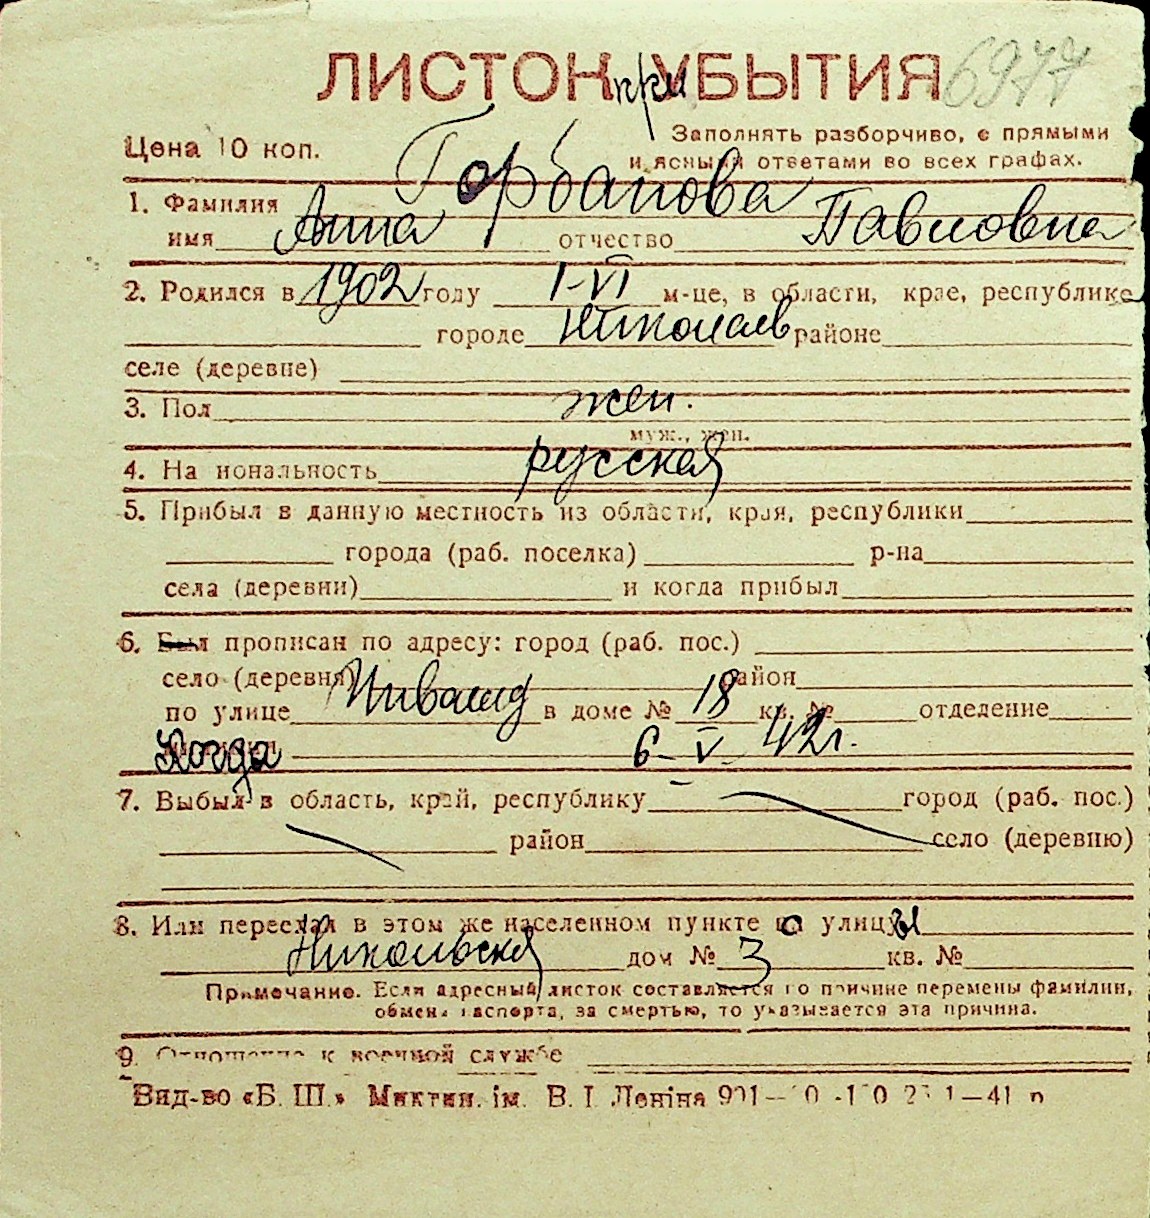 ЛИСТОК УБЫТИЯ
при 6977
Цена 10 коп.
Заполнять разборчиво, с прямыми
и ясными ответами во всех графах.
1. Фамилия Горбанова
имя Анна отчество Павловна
2. Родился в 1902 году I-VI м-це, в области, крае, республике
городе Николаев районе
селе (деревне)
3. Пол жен.
муж., жен.
4. На иональность русская
5. Прибыл в данную местность из области, края, республики
города (раб. поселка) р-на
села (деревни) и когда прибыл
6. Был прописан по адресу: город (раб. пос.)
село (деревня) район
по улице в доме № 18 кв. № отделение
Когда 6-V-42г.
7. Выбыл в область, край, республику город (раб. пос.)
район село (деревню)
8. Или переехал в этом же населенном пункте с улицы
Никольская дом № 3 кв. №
Примечание. Если адресный листок составляется по причине перемены фамилии,
обмена паспорта, за смертью, то указывается эта причина.
9. Отношение к военной службе
Вид-во «Б. Ш.» Миктип. ім. В. І. Леніна